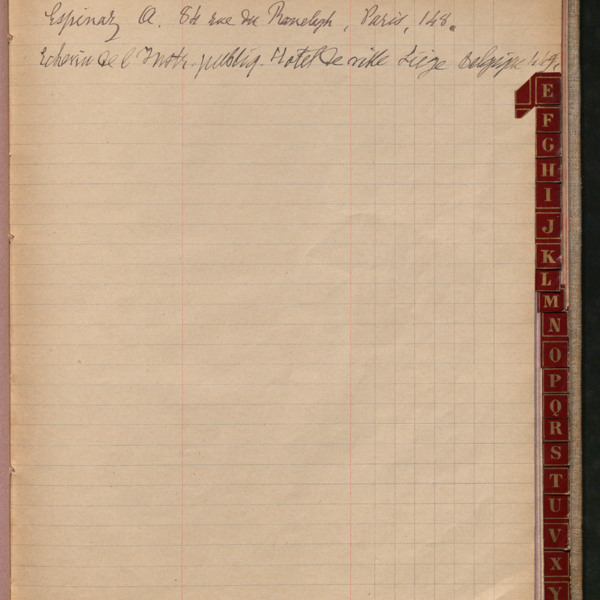 Espinas A. 84 rue du Ranelagh, Paris, 148.
Echevin de l'Instr. publiq. Hotel de ville Liège Belgique 149.
E
F
G
H
I
J
K
L
M
N
O
P
Q
R
S
T
U
V
X
Y